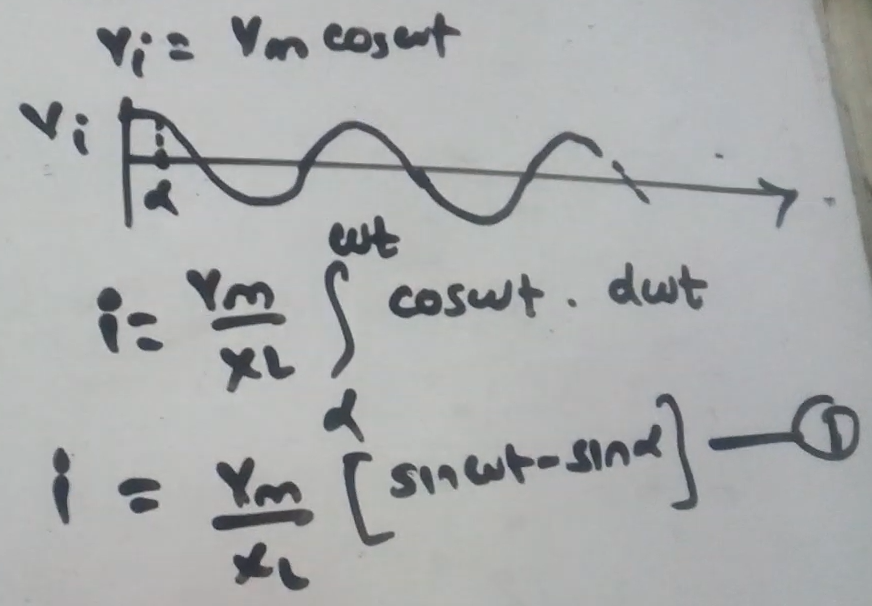 vi = Vm cosωt
vi
α
i = Vm/XL ∫α^ωt cosωt . dωt
i = Vm/XL [sinωt - sinα] — ①